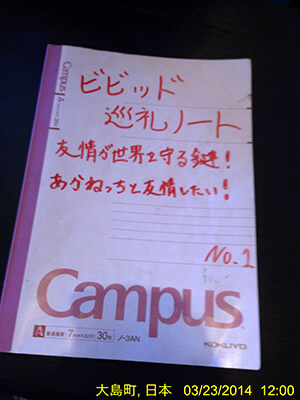 Campus
ビビッド
巡礼ノート
友情が世界を守る鍵!
あかねっちと友情したい!
No.1
Campus
A 普通横罫 7mm×30行 30枚 ノ-3AN
KOKUYO
大島町, 日本 03/23/2014 12:00